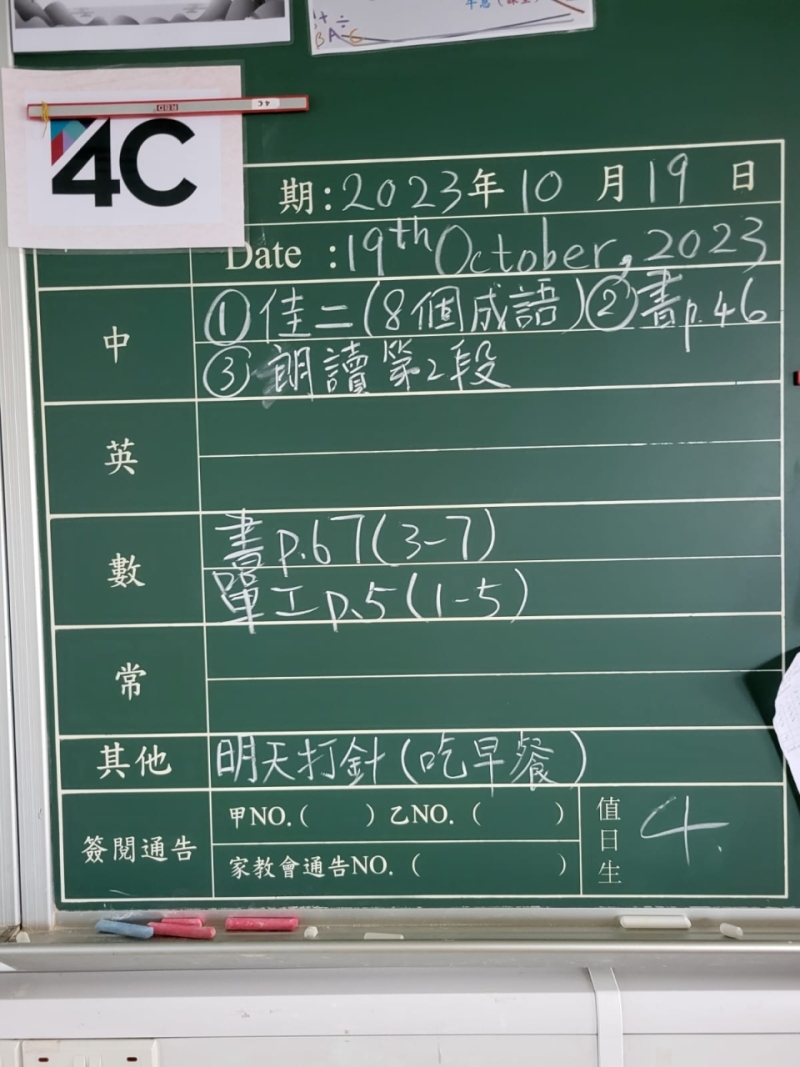 4C
4C
期：2023年10月19日
Date : 19th October, 2023
中
①佳二(8個成語)②書p.46
③朗讀第2段
英
數
書p.67(3-7)
單工p.5(1-5)
常
其他
明天打針(吃早餐)
簽閱通告
甲NO.( ) 乙NO.( )
家教會通告NO.( )
值日生
4.